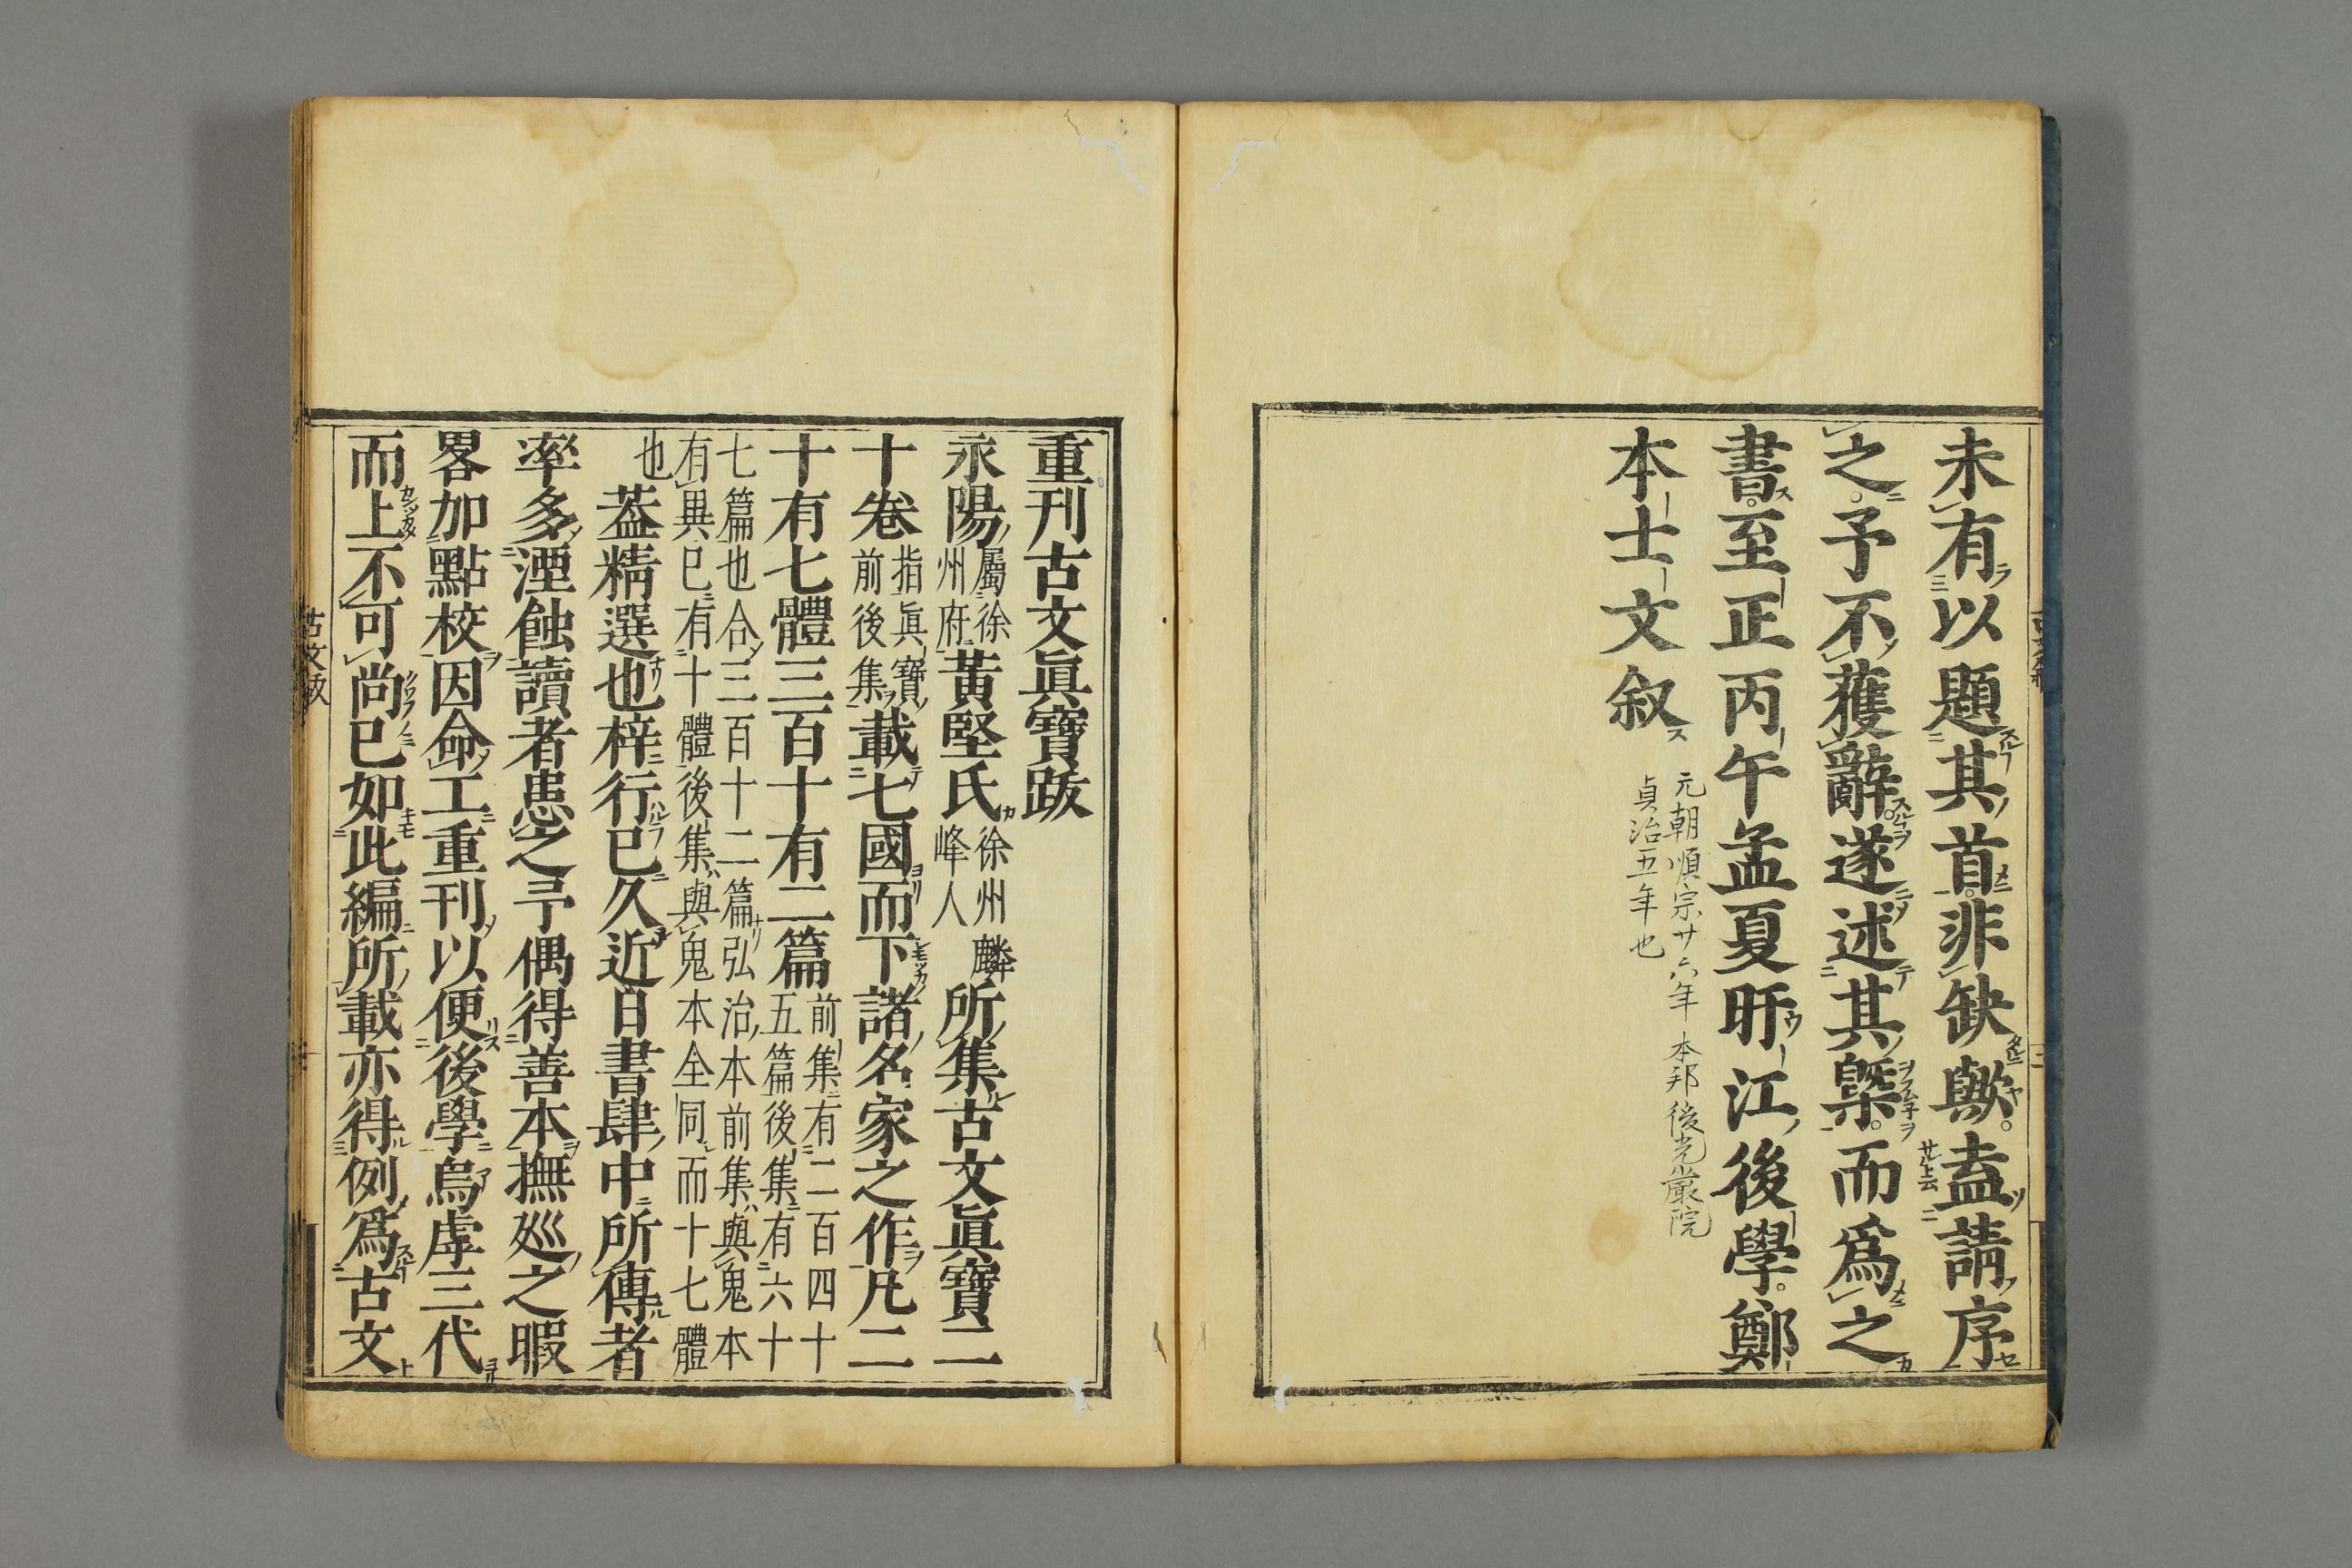 未有以題其首非缺歟盍請序
之予不獲辭遂述其槩而爲之
書至正丙午孟夏盱江後學鄭
本士文叙
元朝順宗廿六年 本邦後光嚴院
貞治五年也
重刊古文眞寶跋
永陽屬徐州府黃堅氏徐州麟峰人所集古文眞寶二
十卷指眞寶前後集載七國而下諸名家之作凡二
十有七體三百十有二篇前集有二百四十五篇後集有六十
七篇也合三百十二篇弘治本前集與鬼本
有異已有十體後集與鬼本全同而十七體
也葢精選也梓行已久近日書肆中所傳者
率多湮蝕讀者患之予偶得善本撫廵之暇
畧加點校因命工重刊以便後學烏虖三代
而上不可尚已如此編所載亦得例爲古文